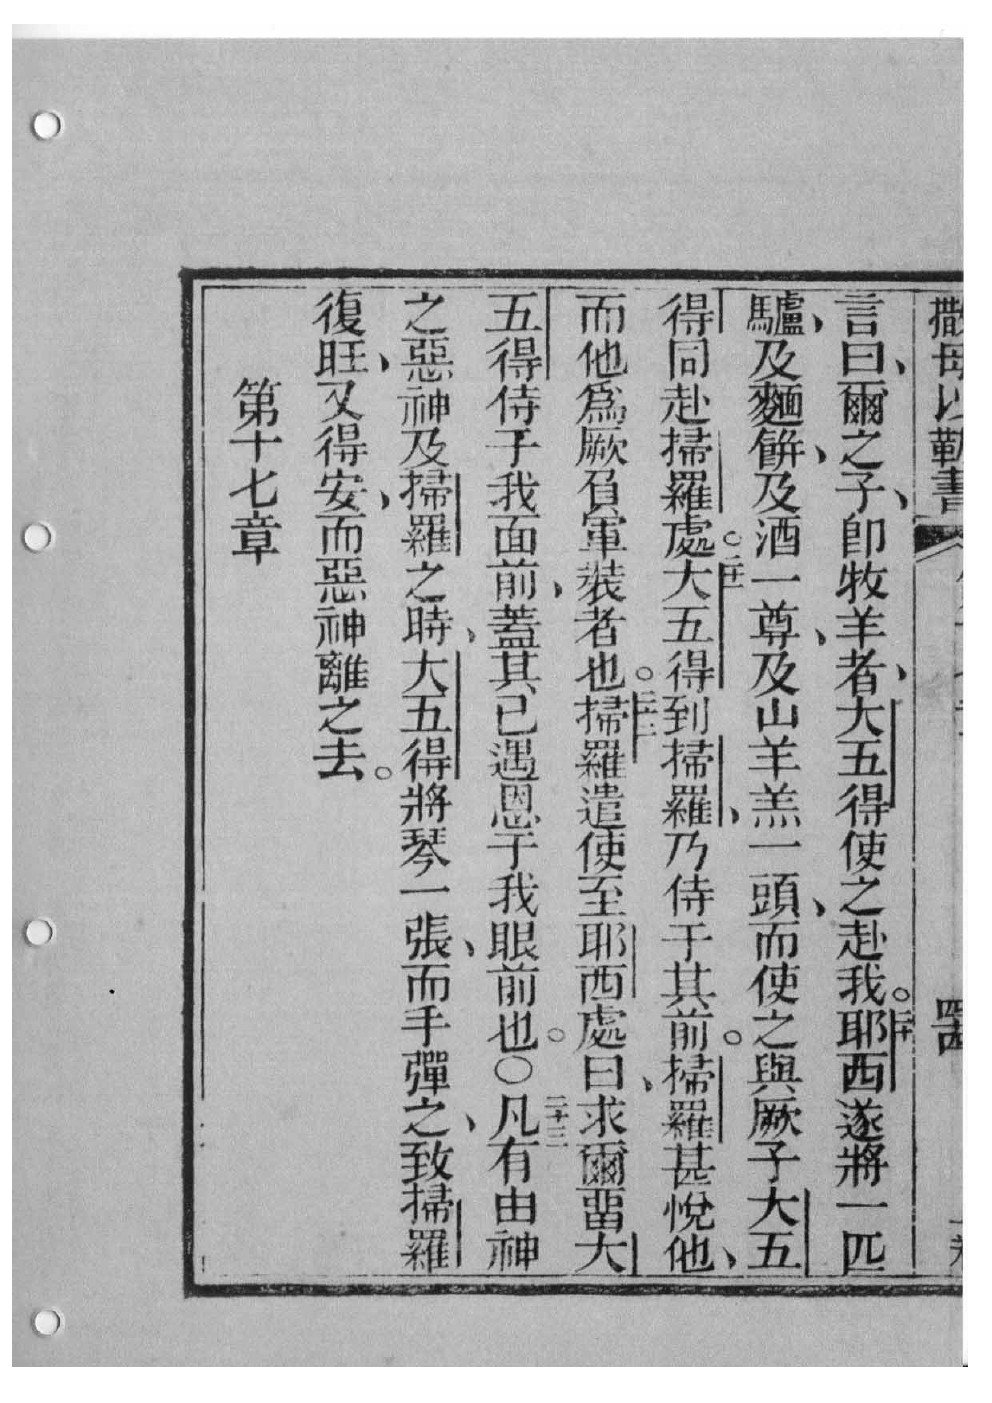 撒母以勒書
言曰、爾之子、卽牧羊者、大五得使之赴我。二十耶西遂將一匹
驢、及麵餠、及酒一尊、及山羊羔一頭、而使之與厥子大五
得同赴掃羅處。二十一大五得到掃羅、乃侍于其前。掃羅甚悅他、
而他爲厥負軍裝者也。二十二掃羅遣使至耶西處曰、求爾畱大
五得侍于我面前、蓋其已遇恩于我眼前也。〇二十三凡有由神
之惡神及掃羅之時、大五得將琴一張、而手彈之、致掃羅
復旺、又得安、而惡神離之去。
第十七章